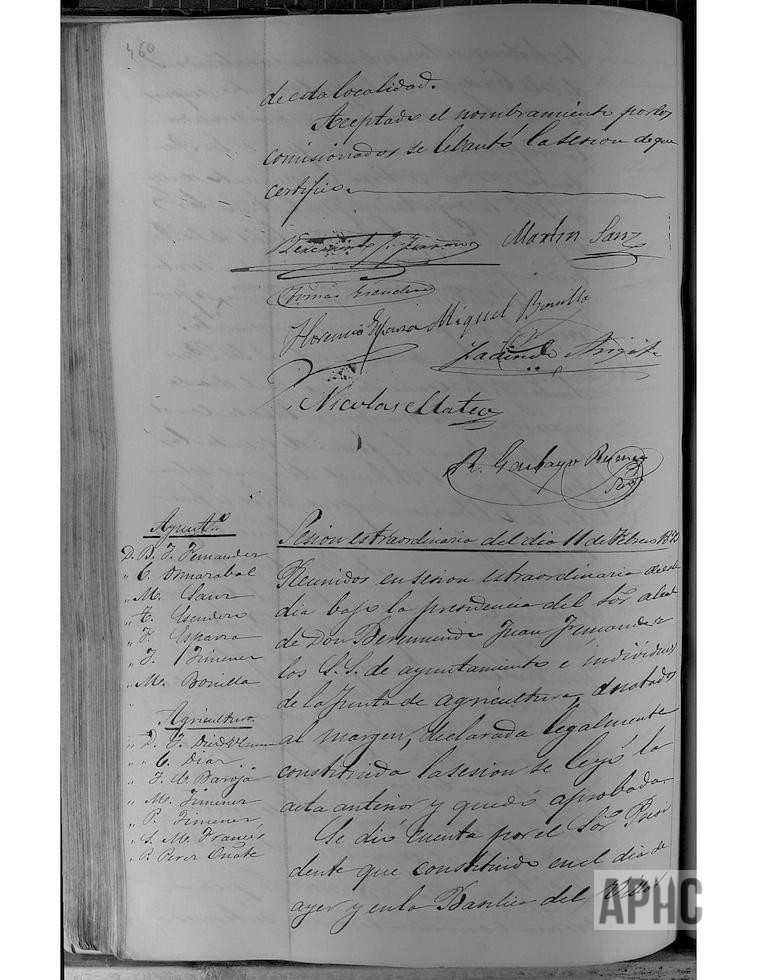 460
de esta localidad.
Aceptado el nombramiento por los
comisionados se lebantó la sesion de que
certifico.
Martin Sanz
Tomás Escudero
Florencio Esparza Miguel Bonilla
Jacinto
Nicolas Mateo
R. Garbayo
Ayuntto
Sesion estraordinaria del dia 11 de Febrero 1893
D. B. J. Fernandez
" C. Omarabal
" M. Sanz
" T. Escudero
" F. Esparza
" J. Jimenez
" M. Bonilla
Agricultura
" C. Diaz
" J. C. Baroja
" M. Jimenez
" P. Jimenez
" S. M. Frances
" P. Perez Oñate
Reunidos en sesion estraordinaria de este
dia bajo la presidencia del Sor alcal
de Don Beremundo Juan Fernandez
los S.S. de ayuntamiento e individuos
de la Junta de agricultura anotados
al margen, declarada legalmente
constituida la sesion se leyó la
acta anterior y quedó aprobada.
Se dió cuenta por el Sor Presi
dente que constituido en el dia de
ayer y en la Basilica del
APHC